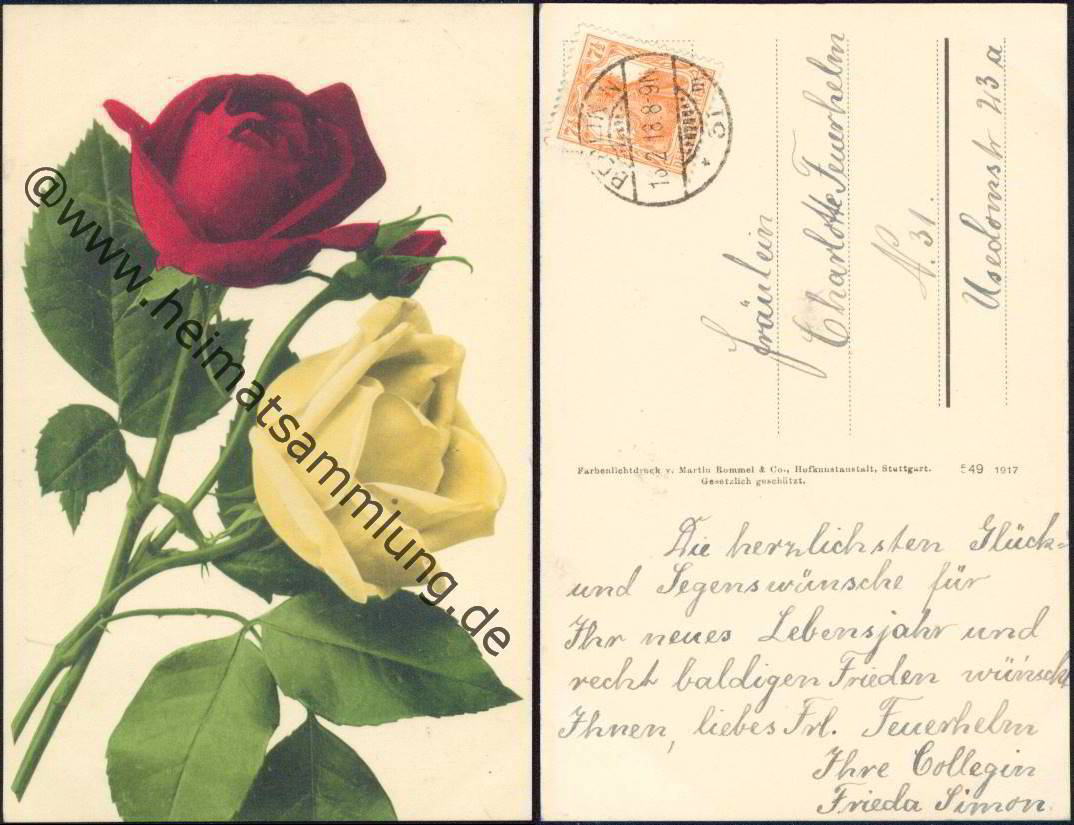 @www.heimatsammlung.de
7½
7½
BERLIN
2.18.8-9N
Fräulein
Charlotte Feuerhelm
N. 31.
Usedomstr 23a
Farbenlichtdruck v. Martin Rommel & Co., Hofkunstanstalt, Stuttgart.
549 1917
Gesetzlich geschützt.
Die herzlichsten Glück-
und Segenswünsche für
Ihr neues Lebensjahr und
recht baldigen Frieden wünscht
Ihnen, liebes Frl. Feuerhelm
Ihre Collegin
Frieda Simon.